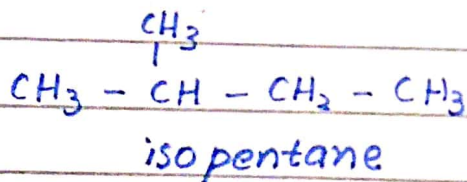 CH3
|
CH3 - CH - CH2 - CH3
isopentane